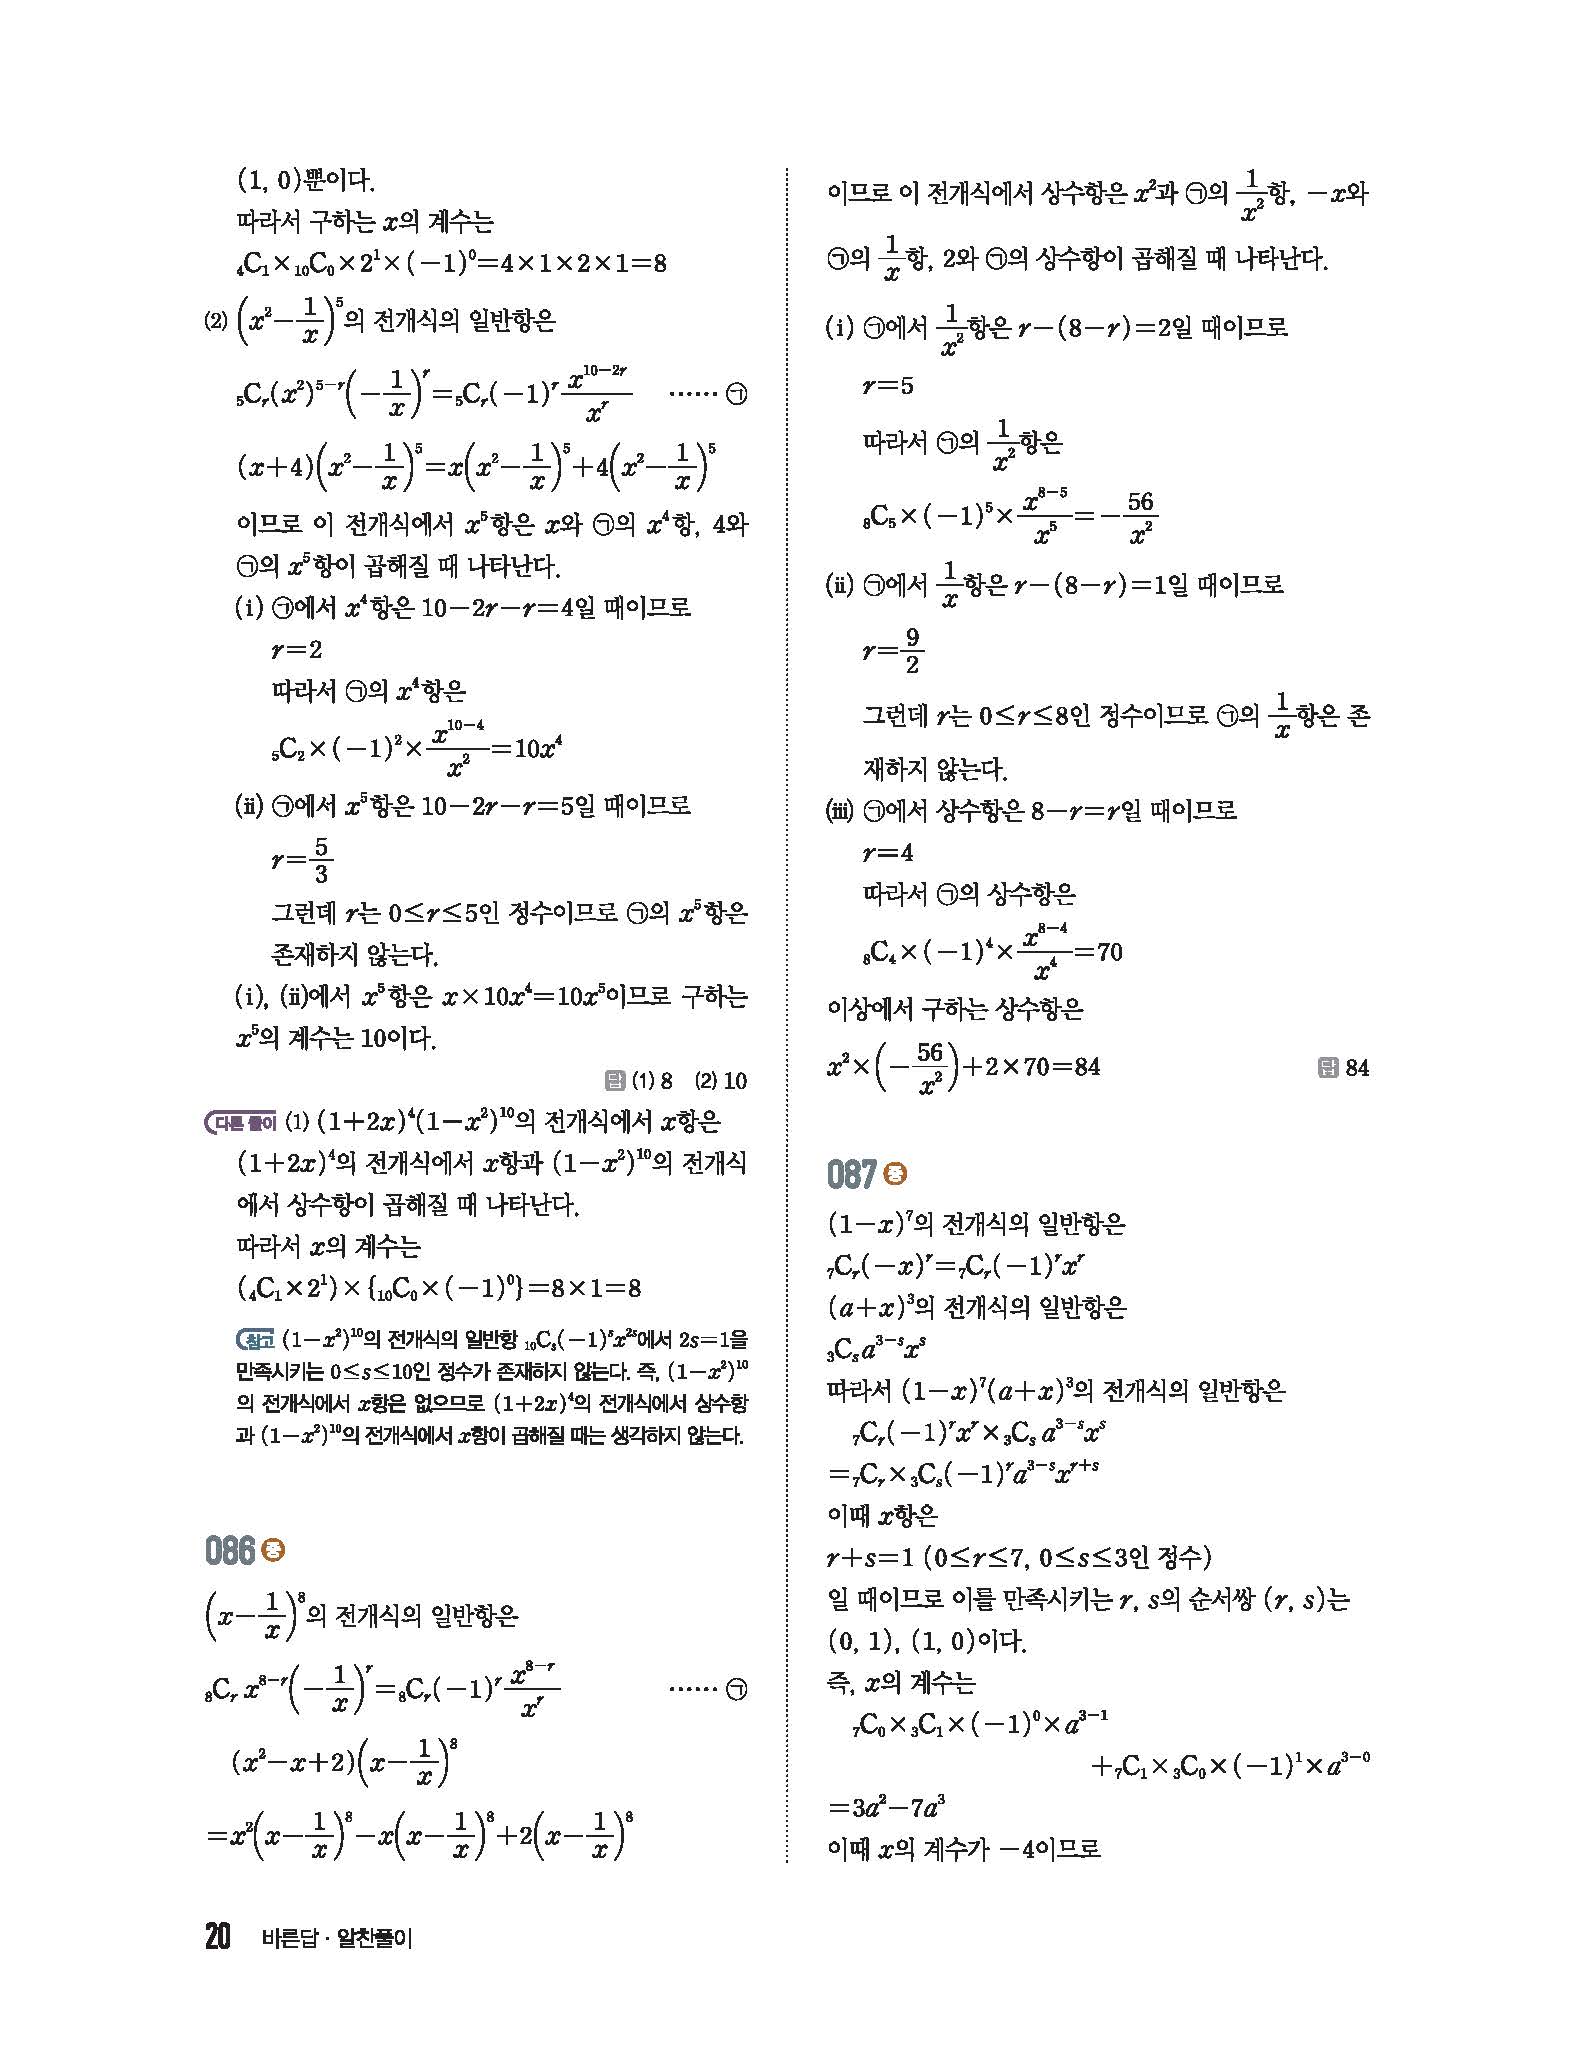 (1, 0)뿐이다.
따라서 구하는 x의 계수는
₄C₁×₁₀C₀×2¹×(−1)⁰=4×1×2×1=8
(2) (x²−1/x)⁵의 전개식의 일반항은
₅Cᵣ(x²)⁵⁻ʳ(−1/x)ʳ=₅Cᵣ(−1)ʳ x¹⁰⁻²ʳ/xʳ …… ㉠
(x+4)(x²−1/x)⁵=x(x²−1/x)⁵+4(x²−1/x)⁵
이므로 이 전개식에서 x⁵항은 x와 ㉠의 x⁴항, 4와
㉠의 x⁵항이 곱해질 때 나타난다.
(ⅰ) ㉠에서 x⁴항은 10−2r−r=4일 때이므로
r=2
따라서 ㉠의 x⁴항은
₅C₂×(−1)²×x¹⁰⁻⁴/x²=10x⁴
(ⅱ) ㉠에서 x⁵항은 10−2r−r=5일 때이므로
r=5/3
그런데 r는 0≤r≤5인 정수이므로 ㉠의 x⁵항은
존재하지 않는다.
(ⅰ), (ⅱ)에서 x⁵항은 x×10x⁴=10x⁵이므로 구하는
x⁵의 계수는 10이다.
답 (1) 8 (2) 10
다른 풀이 (1) (1+2x)⁴(1−x²)¹⁰의 전개식에서 x항은
(1+2x)⁴의 전개식에서 x항과 (1−x²)¹⁰의 전개식
에서 상수항이 곱해질 때 나타난다.
따라서 x의 계수는
(₄C₁×2¹)×{₁₀C₀×(−1)⁰}=8×1=8
참고 (1−x²)¹⁰의 전개식의 일반항 ₁₀Cₛ(−1)ˢx²ˢ에서 2s=1을
만족시키는 0≤s≤10인 정수가 존재하지 않는다. 즉, (1−x²)¹⁰
의 전개식에서 x항은 없으므로 (1+2x)⁴의 전개식에서 상수항
과 (1−x²)¹⁰의 전개식에서 x항이 곱해질 때는 생각하지 않는다.
086 중
(x−1/x)⁸의 전개식의 일반항은
₈Cᵣ x⁸⁻ʳ(−1/x)ʳ=₈Cᵣ(−1)ʳ x⁸⁻ʳ/xʳ …… ㉠
(x²−x+2)(x−1/x)⁸
=x²(x−1/x)⁸−x(x−1/x)⁸+2(x−1/x)⁸
이므로 이 전개식에서 상수항은 x²과 ㉠의 1/x²항, −x와
㉠의 1/x항, 2와 ㉠의 상수항이 곱해질 때 나타난다.
(ⅰ) ㉠에서 1/x²항은 r−(8−r)=2일 때이므로
r=5
따라서 ㉠의 1/x²항은
₈C₅×(−1)⁵×x⁸⁻⁵/x⁵=−56/x²
(ⅱ) ㉠에서 1/x항은 r−(8−r)=1일 때이므로
r=9/2
그런데 r는 0≤r≤8인 정수이므로 ㉠의 1/x항은 존
재하지 않는다.
(ⅲ) ㉠에서 상수항은 8−r=r일 때이므로
r=4
따라서 ㉠의 상수항은
₈C₄×(−1)⁴×x⁸⁻⁴/x⁴=70
이상에서 구하는 상수항은
x²×(−56/x²)+2×70=84 답 84
087 중
(1−x)⁷의 전개식의 일반항은
₇Cᵣ(−x)ʳ=₇Cᵣ(−1)ʳxʳ
(a+x)³의 전개식의 일반항은
₃Cₛa³⁻ˢxˢ
따라서 (1−x)⁷(a+x)³의 전개식의 일반항은
₇Cᵣ(−1)ʳxʳ×₃Cₛ a³⁻ˢxˢ
=₇Cᵣ×₃Cₛ(−1)ʳa³⁻ˢxʳ⁺ˢ
이때 x항은
r+s=1 (0≤r≤7, 0≤s≤3인 정수)
일 때이므로 이를 만족시키는 r, s의 순서쌍 (r, s)는
(0, 1), (1, 0)이다.
즉, x의 계수는
₇C₀×₃C₁×(−1)⁰×a³⁻¹
+₇C₁×₃C₀×(−1)¹×a³⁻⁰
=3a²−7a³
이때 x의 계수가 −4이므로
20 바른답 · 알찬풀이